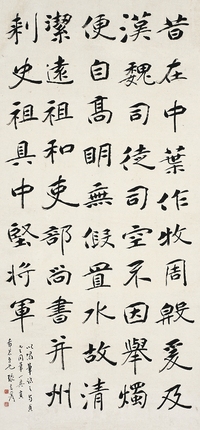 昔在中葉作牧周殷爰及
漢魏司徒司空不因舉燭
便自高明無假置水故清
潔遠祖和吏部尚書并州
刺史祖具中堅將軍